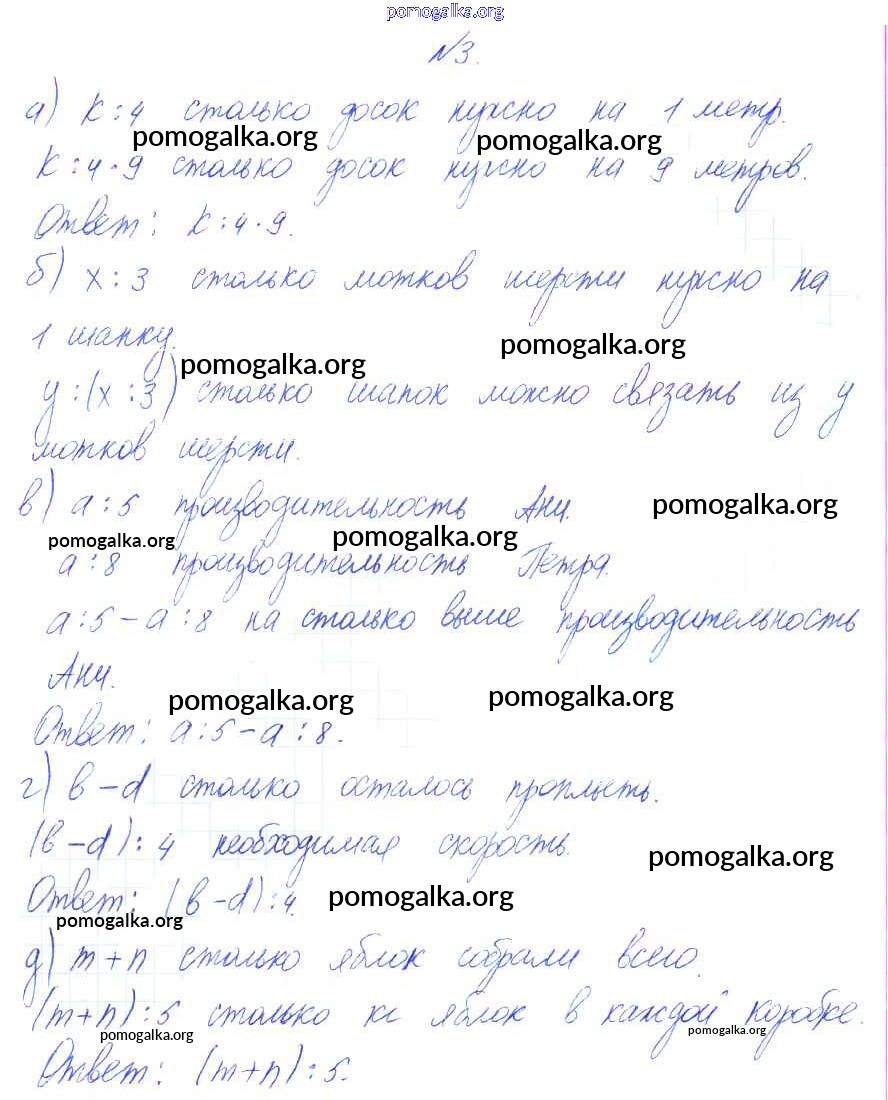 pomogalka.org
№3.
а) k:4 столько досок нужно на 1 метр.
pomogalka.org pomogalka.org
k:4·9 столько досок нужно на 9 метров.
Ответ: k:4·9.
б) x:3 столько мотков шерсти нужно на
1 шапку.
pomogalka.org pomogalka.org
y:(x:3) столько шапок можно связать из y
мотков шерсти.
в) a:5 производительность Ани.
pomogalka.org
pomogalka.org pomogalka.org
a:8 производительность Петра.
a:5-a:8 на столько выше производительность
Ани.
pomogalka.org pomogalka.org
Ответ: a:5-a:8.
г) b-d столько осталось проплыть.
(b-d):4 необходимая скорость.
pomogalka.org
Ответ: (b-d):4.
pomogalka.org
pomogalka.org
д) m+n столько яблок собрали всего.
(m+n):5 столько кг яблок в каждой коробке.
pomogalka.org pomogalka.org
Ответ: (m+n):5.